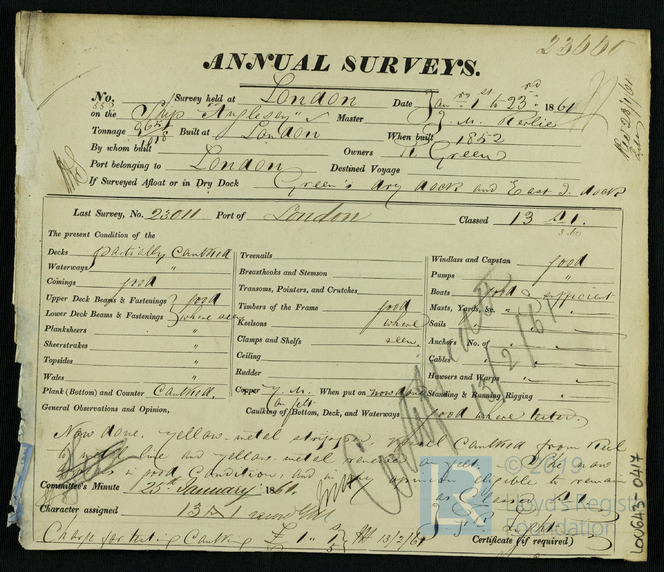 23660
ANNUAL SURVEYS.
No. Survey held at London Date Jany 1st to 23rd 1861
on the Ship "Anglesey" Master
Tonnage 965 1018 Built at London When built 1852
By whom built Owners R Green
Port belonging to London Destined Voyage
If Surveyed Afloat or in Dry Dock Green's dry dock and East I. dock
Last Survey, No. 23011 Port of London Classed 13 A 1.
The present Condition of the
Decks partially Caulked
Waterways "
Comings good
Upper Deck Beams & Fastenings good
Lower Deck Beams & Fastenings where seen
Planksheers "
Sheerstrakes "
Topsides "
Wales "
Plank (Bottom) and Counter Caulked.
General Observations and Opinion,
Treenails
Breasthooks and Stemson
Transoms, Pointers, and Crutches
Timbers of the Frame good
Keelsons where
Clamps and Shelfs seen
Ceiling
Rudder
Copper Y. M. When put on now done
on felt
Caulking of Bottom, Deck, and Waterways good where tested
Windlass and Capstan good
Pumps "
Boats good & efficient
Masts, Yards, &c. "
Sails "
Anchors No. of "
Cables "
Hawsers and Warps "
Standing & Running Rigging "
13/2/61
Now done, yellow metal stripped, vessel Caulked from keel
to and yellow metal renewed on felt. She now
is in good Condition, and in my opinion eligible to remain
as Classed A 1.
Committee's Minute 25th January 1861
Character assigned 13 A 1
Charge for testing Caulking £ 1 13/2/61
Certificate (if required)
© 2019
Lloyd's Register
Foundation
LOU643-047